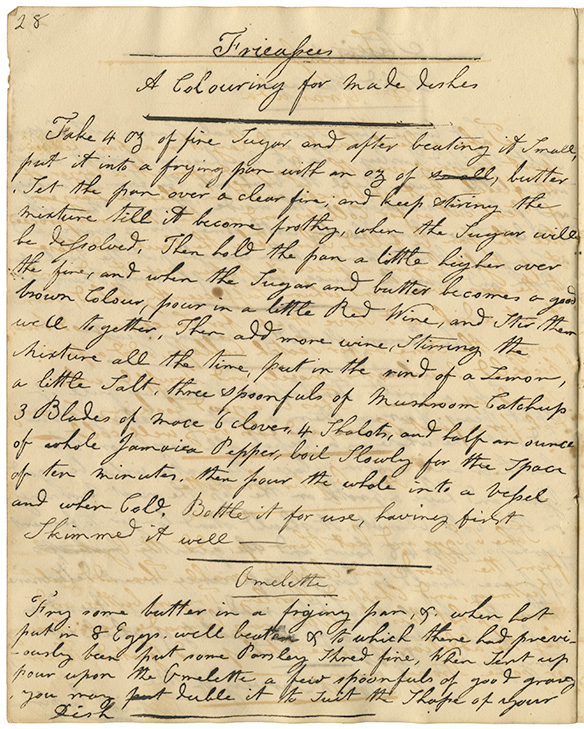 28
Fricassees
A Colouring for made dishes
Take 4 oz of fine Sugar and after beating it Small,
put it into a frying pan with an oz of small, butter
Set the pan over a clear fire, and keep stiring the
mixture till it become frothy, when the Sugar will
be dissolved, Then hold the pan a little higher over
the fire, and when the Sugar and butter becomes a good
brown Colour, pour in a little Red Wine, and Stir them
well together, Then add more wine, Stirring the
Mixture all the time, put in the rind of a Lemon,
a little Salt, three spoonfuls of Mushroom Catchup
3 Blades of mace 6 cloves, 4 Shalots, and half an ounce
of whole Jamaica Pepper, boil Slowly for the Space
of ten minutes, then pour the whole into a Vessel
and when Cold, Bottle it for use, having first
Skimmed it well
Omelette
Fry some butter in a frying pan, &. when hot
put in 8 Eggs. well beaten & to which there had previ-
-ously been put some Parsley Shred fine, When Sent up
pour upon the Omelette a few spoonfuls of good gravy
you may put duble it to Suit the Shape of your
Dish